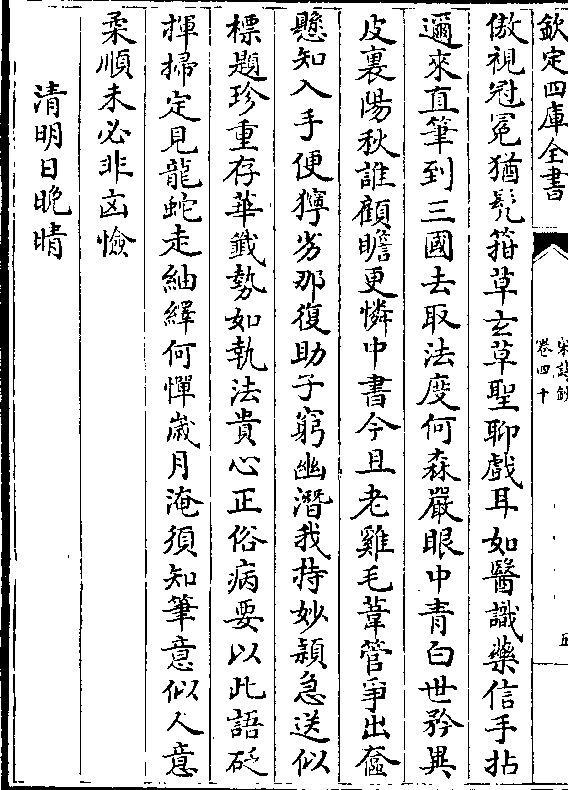 欽定四庫全書
宋詩鈔
卷四十
五
傲視冠冕猶髠箝草玄草聖聊戲耳如醫識藥信手拈
邇來直筆到三國去取法度何森嚴眼中青白世矜異
皮裏陽秋誰顧瞻更憐中書今且老雞毛葦管爭出奩
懸知入手便獰劣那復助子窮幽潛我持妙穎急送似
標題珍重存華籖勢如執法貴心正俗病要以此語砭
揮掃定見龍蛇走紬繹何憚嵗月淹須知筆意似人意
柔順未必非凶憸
清明日晚晴